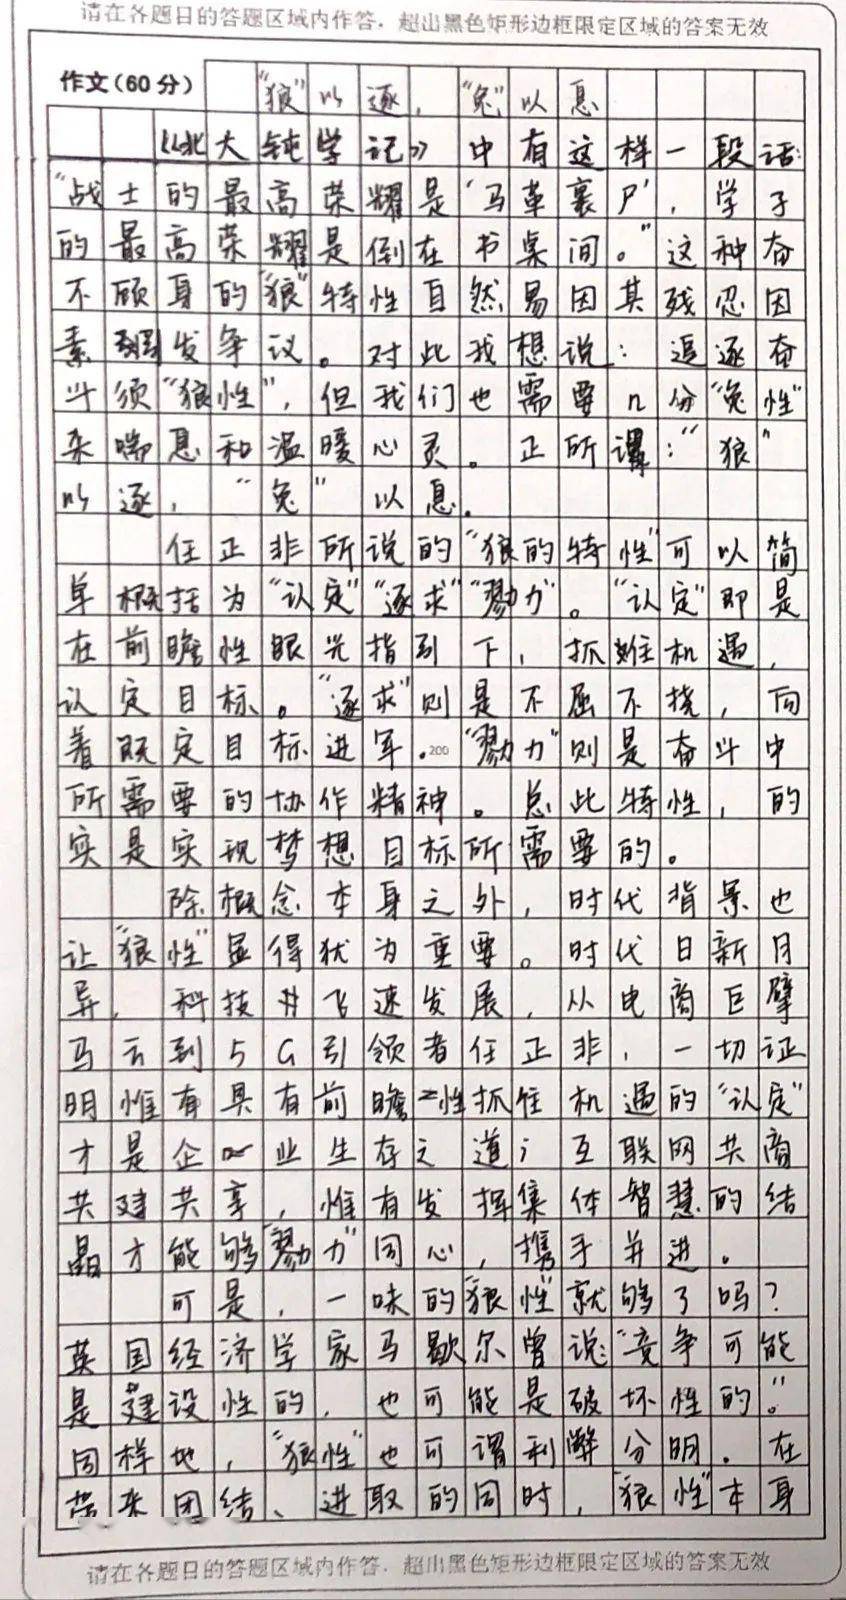 请在各题目的答题区域内作答，超出黑色矩形边框限定区域的答案无效
作文(60分)
“狼”以逐，“兔”以息
《北大钝学记》中有这样一段话：
“战士的最高荣耀是‘马革裹尸’，学子
的最高荣耀是倒在书桌间。”这种奋
不顾身的“狼”特性自然易因其残忍因
素引发争议。对此我想说：追逐奋
斗须“狼性”，但我们也需要几分“兔性”
来喘息和温暖心灵。正所谓：“狼”
以逐，“兔”以息。
任正非所说的“狼的特性”可以简
单概括为“认定”“逐求”“勠力”。“认定”即是
在前瞻性眼光指引下，抓准机遇，
认定目标。“逐求”则是不屈不挠，向
着既定目标进军。“勠力”则是奋斗中
200
所需要的协作精神。总此特性，的
实是实现梦想目标所需要的。
除概念本身之外，时代背景也
让“狼性”显得犹为重要。时代日新月
异，科技井飞速发展，从电商巨擘
马云到5G引领者任正非，一切证
明惟有具有前瞻性抓住机遇的“认定”
才是企业生存之道；互联网共商
共建共享，惟有发挥集体智慧的结
晶才能够“勠力”同心，携手并进。
可是，一味的“狼性”就够了吗？
英国经济学家马歇尔曾说：“竞争可能
是建设性的，也可能是破坏性的。”
同样地，“狼性”也可谓利弊分明。在
带来团结、进取的同时，“狼性”本身
请在各题目的答题区域内作答，超出黑色矩形边框限定区域的答案无效